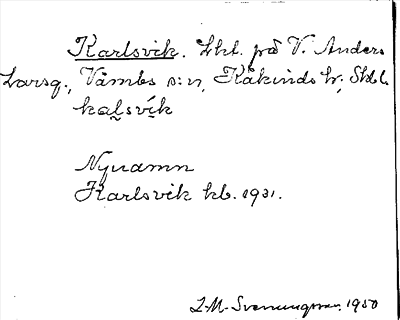 Karlsvik. Lht. på V. Anders
Larsg., Våmbs s:n, Kåkinds hr, Skbl.
kal̰svík
Nynamn
Karlsvik kb. 1931.
L-M- Svenungsson. 1950